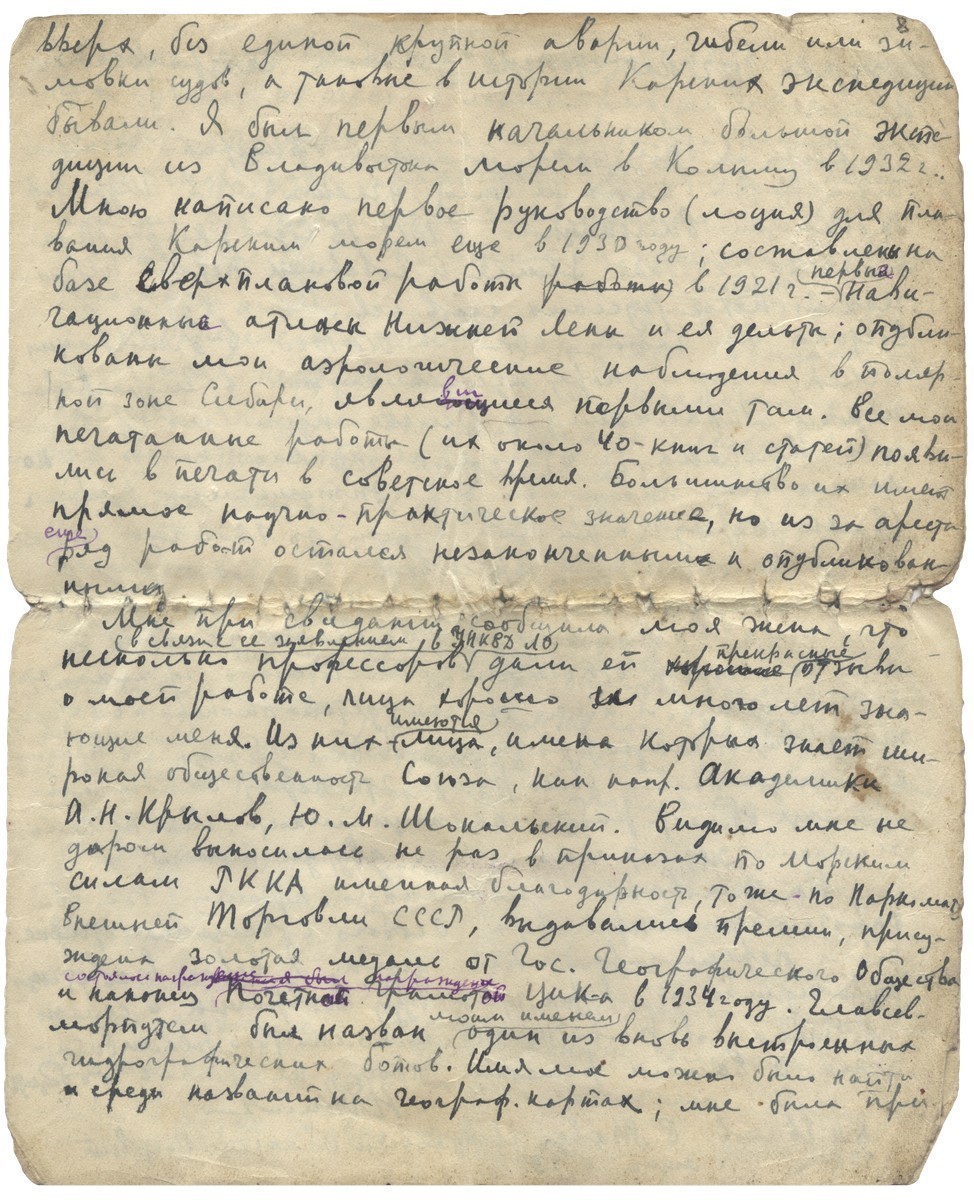 8
вверх, без единой крупной аварии, гибели или зи-
мовки судов, а таковые в истории Карских экспедиций
бывали. Я был первым начальником большой экспе
диции из Владивостока морем в Колыму в 1932 г..
Мною написано первое руководство (лоция) для пла
вания Карским морем еще в 1930 году; составлен на
базе сверхплановой работы (работы) в 1921 г. – первый Нави-
гационный атлас Нижней Лены и ея дельты; опубли-
кованы мои аэрологические наблюдения в поляр-
ной зоне Сибири, являвшиеся первыми там. Все мои
печатанные работы (их около 40 - книг и статей) появи-
лись в печати в советское время. Большинство их имеет
прямое научно-практическое значение, но из за ареста
еще ряд работ остался незаконченными и опубликован-
ными.
Мне при свидании сообщила моя жена, что
несколько профессоров в связи с ее заявлением в УНКВД ЛО дали ей хорошие прекрасные отзывы
о моей работе, лица хорошо и много лет зна-
ющие меня. Из них имеются лица, имена которых знает ши-
рокая общественность Союза, как напр. Академики
А.Н. Крылов, Ю.М. Шокальский. Видимо мне не
даром выносилась не раз в приказах по Морским
силам РККА именная благодарность, тоже - по Наркомату
Внешней Торговли СССР, выдавались премии, прису-
ждена золотая медаль от Гос. Географического Общества
и наконец состоялось награждение Почетной грамотой ЦИК-а в 1934 году. Главсев-
морпутем был назван моим именем один из вновь выстроенных
гидрографических ботов. Имя мое можно было найти
и среди названий на географ. картах; мне была при